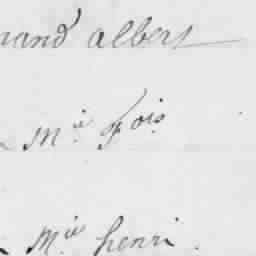 nand albert
Mie fois
Mie henri